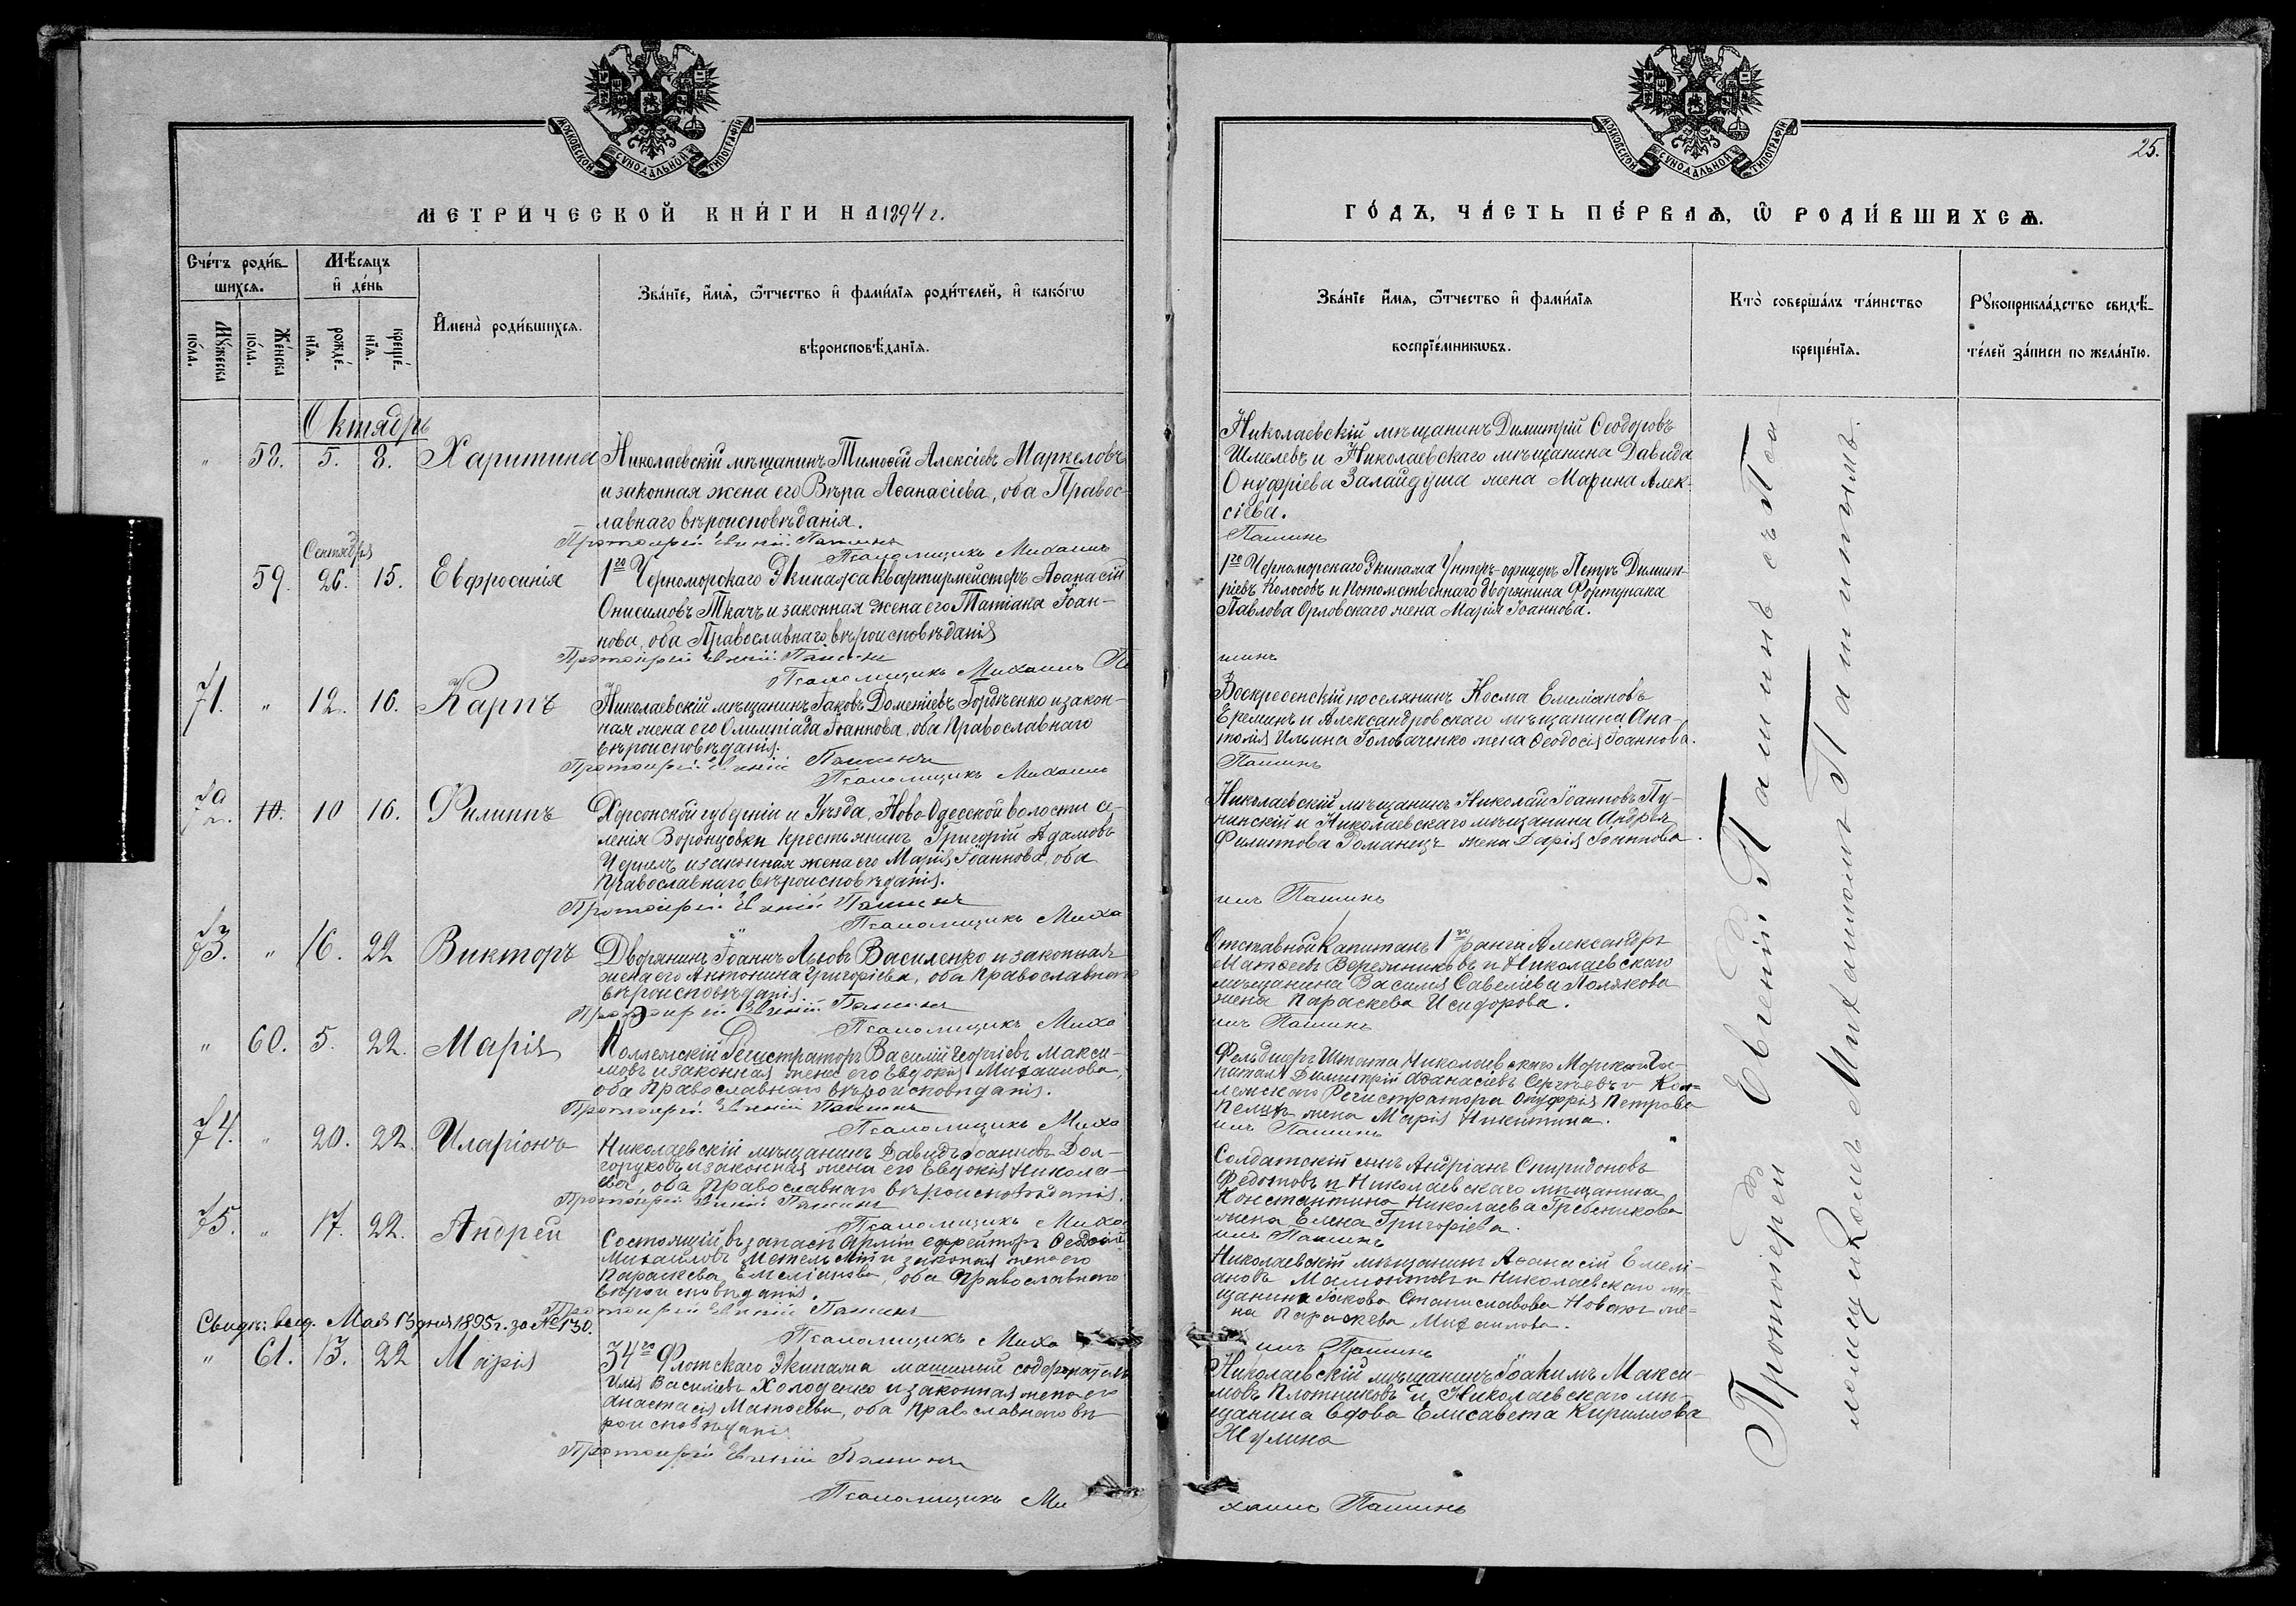 МОСКОВСКОЙ СѴНОДАЛЬНОЙ ТИПОГРАФІИ
МЕТРИ́ЧЕСКОЙ КНИ́ГИ НА 1894 г.
Сче́тъ роди́в-
шихсѧ.
Мѣ́сяцъ
и҆ де́нь
Мꙋ́жеска
по́ла.
Же́нска
по́ла.
рожде́-
нїѧ.
креще́-
нїѧ.
И҆мена̀ роди́вшихсѧ.
Зва́нїе, и҆́мѧ, ѻ҆́тчество и҆ фами́лїѧ роди́телей, и҆ како́гѡ
вѣроисповѣ́данїѧ.
Октябрь
" 58. 5. 8. Харитина
Николаевскій мѣщанинъ Тимоѳей Алексіевъ Маркеловъ
и законная жена его Вѣра Аѳанасіева, оба Правос-
лавнаго вѣроисповѣданія.
Протоіерей Евгеній Пашинъ
Псаломщикъ Михаилъ
Сентября
59. 26. 15. Евфросинія
1го Черноморскаго Экипажа квартирмейстеръ Аѳанасій
Онисимовъ Ткачъ и законная жена его Татіана Іоан-
нова, оба Православнаго вѣроисповѣданія
Протоіерей Евгеній Пашинъ
Псаломщикъ Михаилъ Па
71. " 12. 16. Карпъ
Николаевскій мѣщанинъ Іаковъ Дометіевъ Гордѣенко и закон-
ная жена его Олимпіада Іоаннова, оба Православнаго
вѣроисповѣданія.
Протоіерей Евгеній Пашинъ
Псаломщикъ Михаилъ
72. 10. 10 16. Филиппъ
Херсонской губерніи и Уѣзда, Ново-Одесской волости се-
ленія Воронцовки крестьянинъ Григорій Адамовъ
Чернелъ и законная жена его Марія Іоаннова, оба
Православнаго вѣроисповѣданія.
Протоіерей Евгеній Пашинъ
Псаломщикъ Миха
73. " 16. 22 Викторъ
Дворянинъ Іоаннъ Львовъ Василенко и законная
жена его Антонина Григоріева, оба православнаго
вѣроисповѣданія.
Протоіерей Евгеній Пашинъ
Псаломщикъ Миха
" 60. 5. 22. Марія
Коллежскій Регистраторъ Василій Георгіевъ Макси-
мовъ и законная жена его Евдокія Михаилова,
оба Православнаго вѣроисповѣданія.
Протоіерей Евгеній Пашинъ
Псаломщикъ Миха
74. " 20. 22. Иларіонъ
Николаевскій мѣщанинъ Давидъ Іоанновъ Дол-
горуковъ и законная жена его Евдокія Никола-
ева, оба Православнаго вѣроисповѣданія.
Протоіерей Евгеній Пашинъ
Псаломщикъ Миха
75. " 17. 22. Андрей
Состоящій въ запасѣ Арміи ефрейторъ Ѳеодосій
Михаиловъ Метельскій и законая жена его
Параскева Емеліанова, оба Православнаго
вѣроисповѣданія.
Протоіерей Евгеній Пашинъ
Псаломщикъ Миха
Свидѣ: выд. Мая 13 дня 1895 г. за № 130.
" 61. 13. 22 Марія
34го Флотскаго Экипажа машинный содержатель
Илія Василіевъ Холоденко и законная жена его
Анастасія Матѳеева, оба Православнаго вѣ-
роисповѣданія
Протоіерей Евгеній Пашинъ
Псаломщикъ Ми
МОСКОВСКОЙ СѴНОДАЛЬНОЙ ТИПОГРАФІИ
25.
ГО́ДЪ, ЧА́СТЬ ПЕ́РВАѦ, Ѡ҆ РОДИ́ВШИХСѦ.
Зва́нїе и҆́мѧ, ѻ҆́тчество и҆ фами́лїѧ
воспрїе́мникѡвъ.
Кто̀ соверша́лъ та́инство
креще́нїѧ.
Рꙋкоприкла́дство свидѣ́-
телей за́писи по жела́нїю.
Николаевскій мѣщанинъ Димитрій Ѳеодоровъ
Шмелевъ и Николаевскаго мѣщанина Давида
Онуфріева Залайдуша жена Марина Алек-
сіева.
Пашинъ
1го Черноморскаго Экипажа Унтеръ-офицеръ Петръ Димит-
ріевъ Колосовъ и Потомственнаго дворянина Фортуната
Павлова Орловскаго жена Марія Іоаннова.
шинъ
Воскресенскій поселянинъ Косма Емеліановъ
Ереминъ и Александровскаго мѣщанина Ана-
толія Ильина Головаченко жена Ѳеодосія Іоаннова.
Пашинъ
Николаевскій мѣщанинъ Николай Іоанновъ Пу-
нинскій и Николаевскаго мѣщанина Андрея
Филиппова Романецъ жена Дарія Іоаннова.
илъ Пашинъ
Отставной Капитанъ 1го ранга Александръ
Матѳеевъ Верещниковъ и Николаевскаго
мѣщанина Василія Савеліева Полякова
жена Параскева Исидорова.
илъ Пашинъ
Фельдшеръ Штата Николаевскаго Морскаго Гос-
питаля Димитрій Аѳанасіевъ Сергѣевъ и Кол-
лежскаго Регистратора Онуфрія Петрова
жена Марія Никитина.
илъ Пашинъ
Солдатскій сынъ Андріанъ Спиридоновъ
Федотовъ и Николаевскаго мѣщанина
Константина Николаева Гребеникова
жена Елена Григоріева.
илъ Пашинъ
Николаевскій мѣщанинъ Аѳанасій Емелі-
ановъ Мамонтовъ и Николаевскаго мѣ-
щанина Іакова Станиславова Новакъ же-
на Параскева Михаилова.
илъ Пашинъ
Николаевскій мѣщанинъ Іоакимъ Макси-
мовъ Плотниковъ и Николаевскаго мѣ-
щанина вдова Елисавета Кириллова
Жулина
хаилъ Пашинъ
Протоіерей Евгеній Пашинъ съ Пса
ломщикомъ Михаиломъ Пашинымъ.